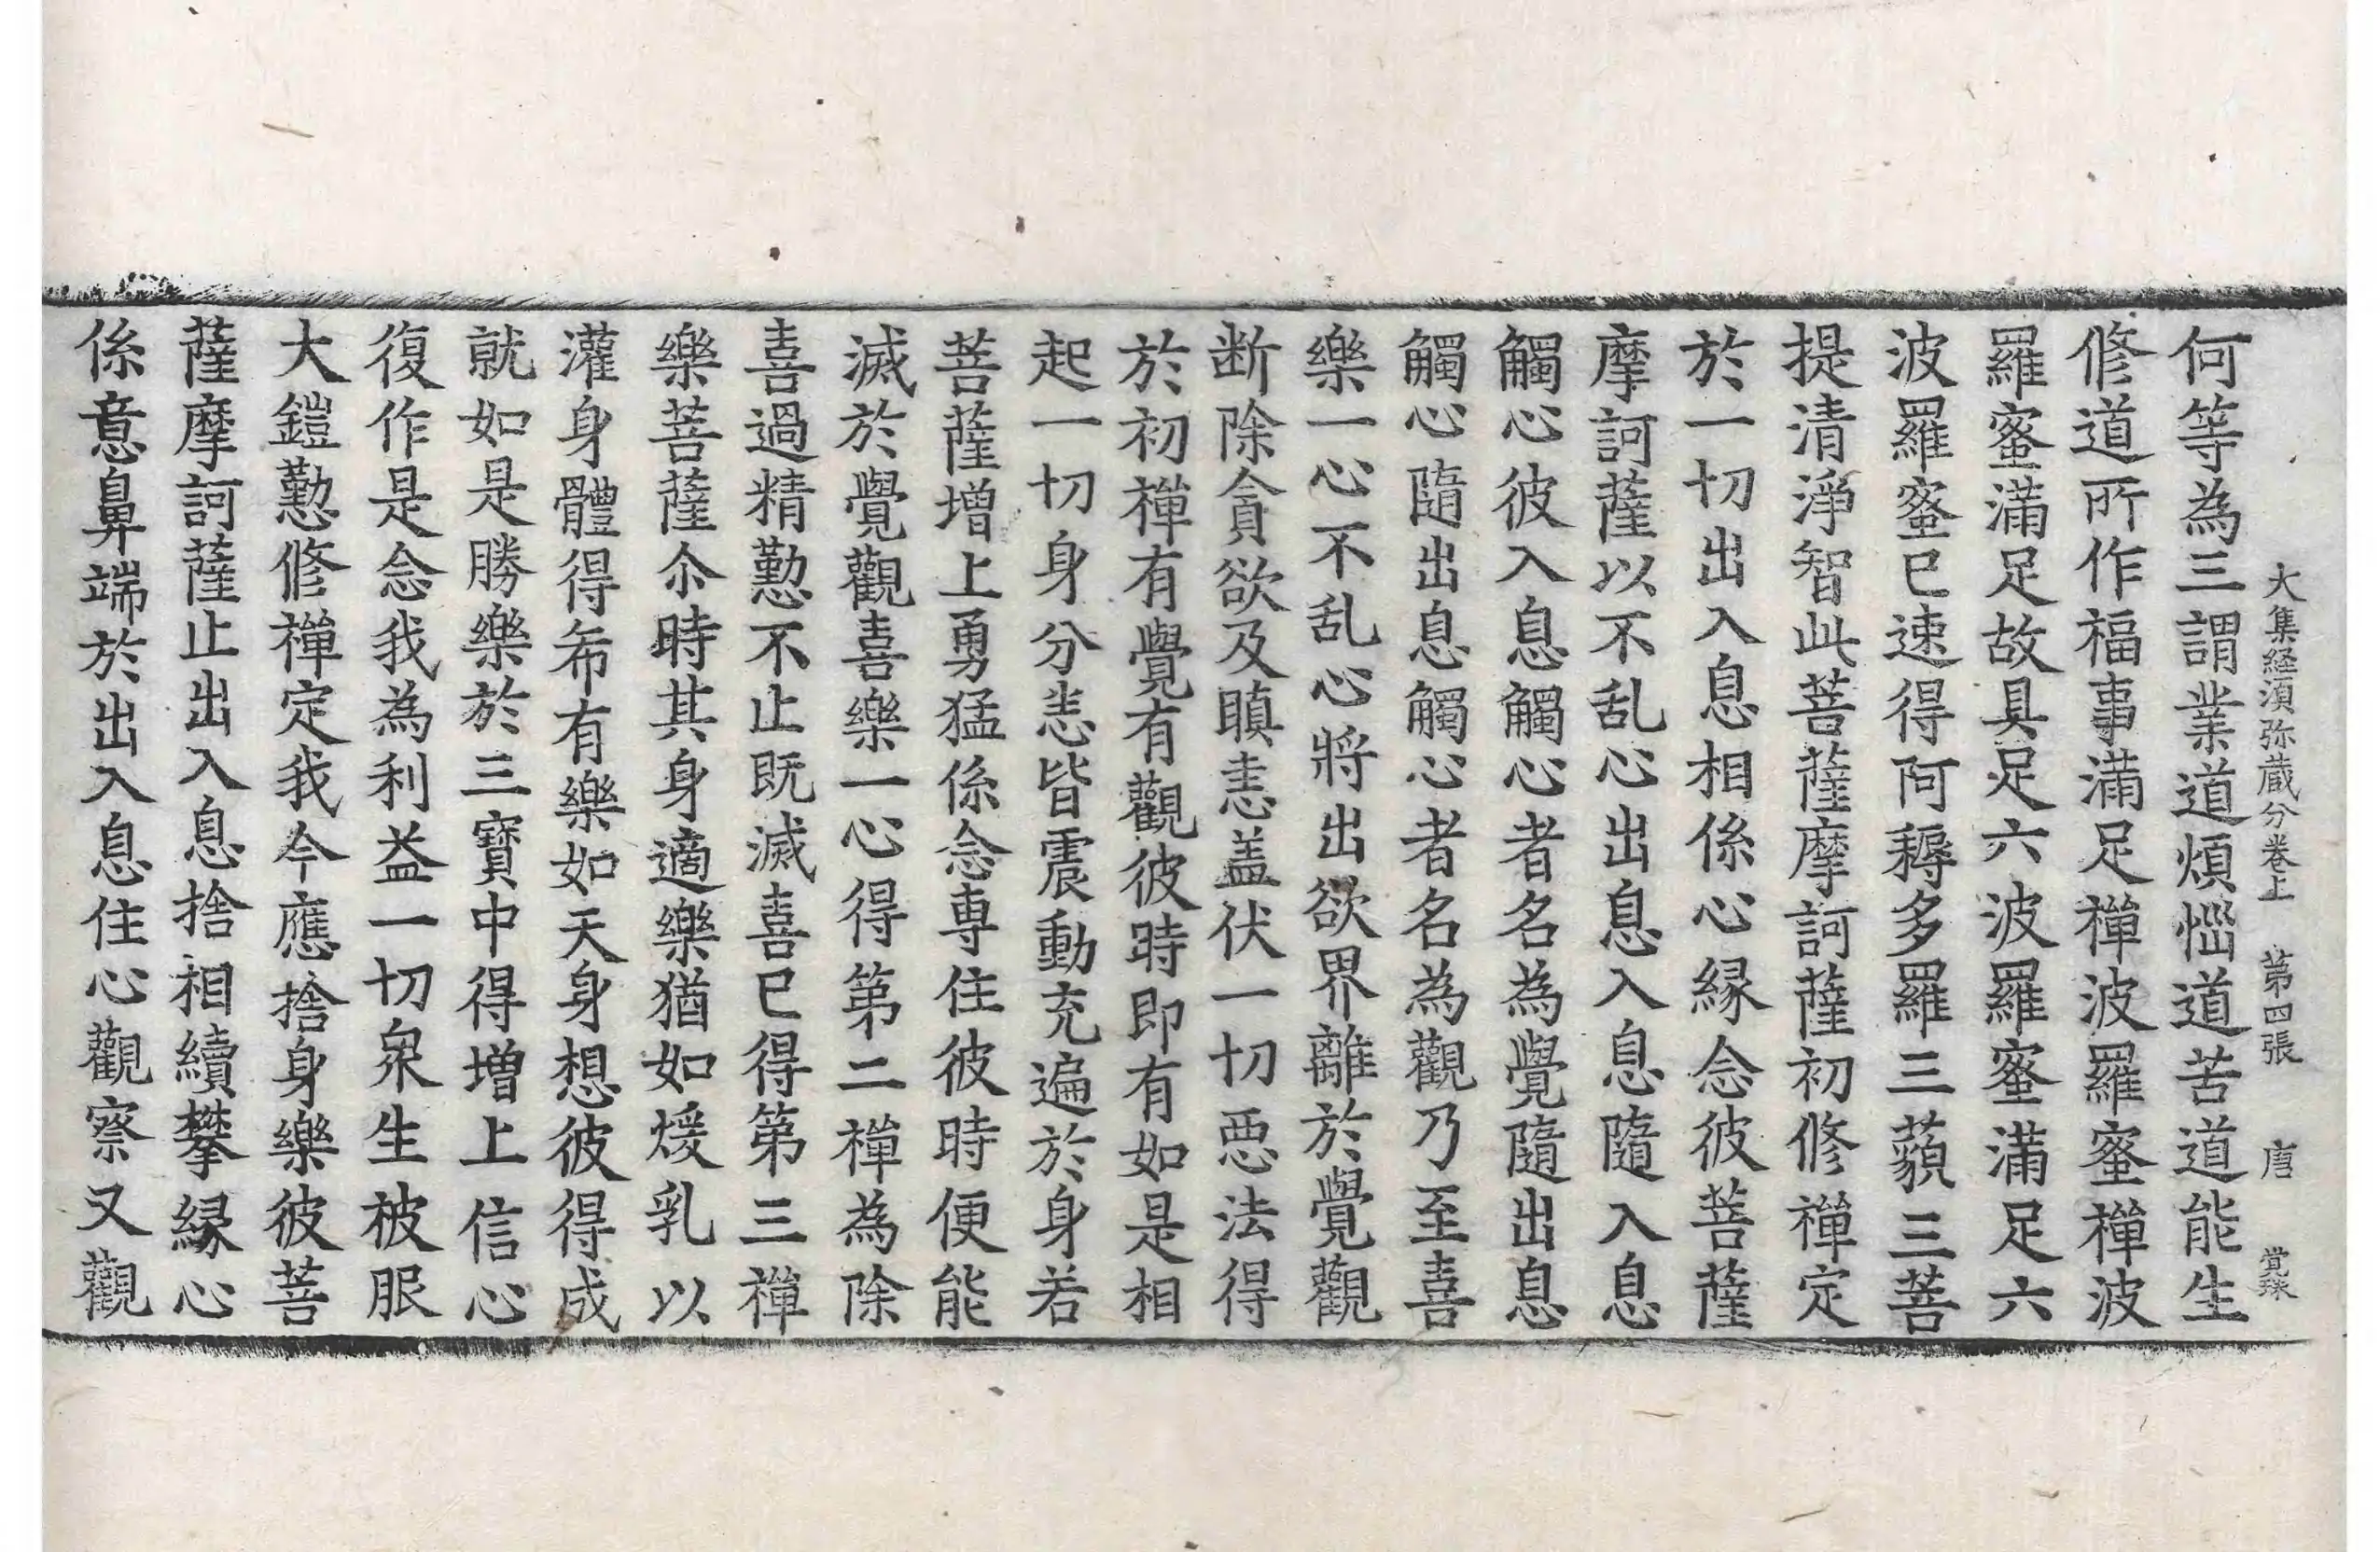 大集経湏弥蔵分卷上 第四張 唐 覚珠
何等為三謂業道煩惱道苦道能生
修道所作福事滿足禪波羅蜜禪波
羅蜜滿足故具足六波羅蜜滿足六
波羅蜜已速得阿耨多羅三藐三菩
提清淨智此菩薩摩訶薩初修禪定
於一切出入息相係心縁念彼菩薩
摩訶薩以不乱心出息入息隨入息
觸心彼入息觸心者名為覺隨出息
觸心隨出息觸心者名為觀乃至喜
樂一心不乱心將出欲界離於覺觀
断除貪欲及瞋恚盖伏一切惡法得
於初禪有覺有觀彼時即有如是相
起一切身分恚皆震動充遍於身若
菩薩增上勇猛係念専住彼時便能
滅於覺觀喜樂一心得第二禪為除
喜過精懃不止既滅喜已得第三禪
樂菩薩尒時其身適樂猶如煖乳以
灌身體得希有樂如天身想彼得成
就如是勝樂於三寶中得增上信心
復作是念我為利益一切衆生被服
大鎧懃修禪定我今應捨身樂彼菩
薩摩訶薩止出入息捨相續攀縁心
係意鼻端於出入息住心觀察又觀